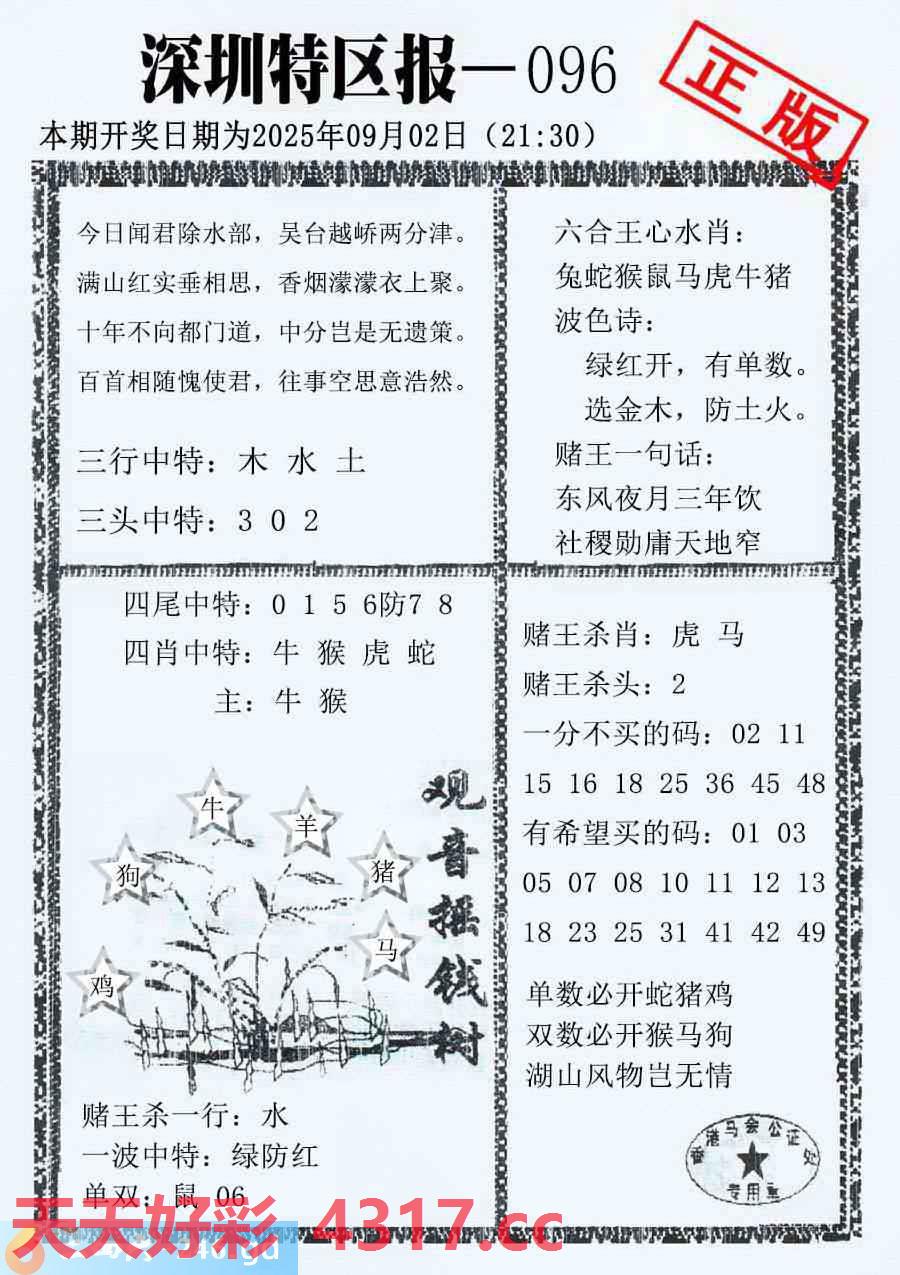 深圳特区报—096
正版
本期开奖日期为2025年09月02日（21:30）
今日闻君除水部，吴台越峤两分津。
满山红实垂相思，香烟濛濛衣上聚。
十年不向都门道，中分岂是无遗策。
百首相随愧使君，往事空思意浩然。
三行中特：木 水 土
三头中特：3 0 2
六合王心水肖：
兔蛇猴鼠马虎牛猪
波色诗：
绿红开，有单数。
选金木，防土火。
赌王一句话：
东风夜月三年饮
社稷勋庸天地窄
四尾中特：0 1 5 6防7 8
四肖中特：牛 猴 虎 蛇
主：牛 猴
观音摇钱树
牛
羊
狗
猪
马
鸡
赌王杀一行：水
一波中特：绿防红
单双：鼠 06
赌王杀肖：虎 马
赌王杀头：2
一分不买的码：02 11
15 16 18 25 36 45 48
有希望买的码：01 03
05 07 08 10 11 12 13
18 23 25 31 41 42 49
单数必开蛇猪鸡
双数必开猴马狗
湖山风物岂无情
香港马会公证处
专用章
天天好彩 4317.cc